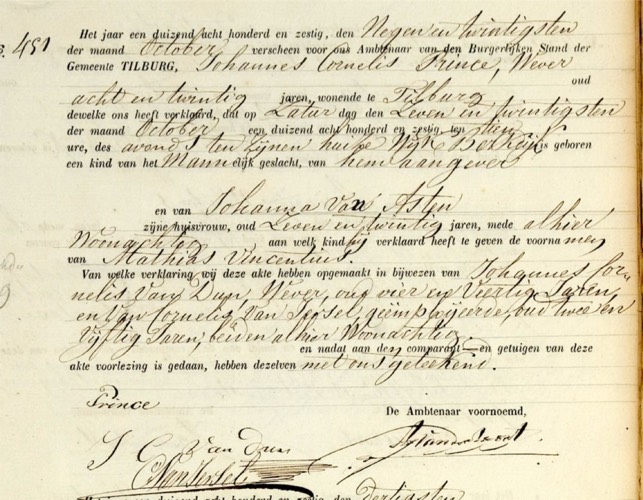 3. 451
Het jaar een duizend acht honderd en zestig, den Negen en twintigsten
der maand October verscheen voor ons Ambtenaar van den Burgerlijken Stand der
Gemeente TILBURG, Johannes Cornelis Prince, Wever
oud
acht en twintig jaren, wonende te Tilburg
dewelke ons heeft verklaard, dat op Zatur dag den Zeven en twintigsten
der maand October een duizend acht honderd en zestig, ten tien
ure, des avonds ten zijnen huise Wijk is geboren
een kind van het Mannelijk geslacht, van hem aangever
en van Johanna Van Asten
zijne huisvrouw, oud Zeven en twintig jaren, mede alhier
Woonachtig aan welk kind hij verklaard heeft te geven de voornamen
van Mathias Vincentius.
Van welke verklaring wij deze akte hebben opgemaakt in bijwezen van Johannes Cor-
nelis Van Dun, Wever, oud vier en Veertig Jaren,
en Van Cornelis Van Iersel, geëmploijeerde, oud twee en
Vijftig Jaren, beiden alhier Woonachtig.
en nadat aan den comparant en getuigen van deze
akte voorlezing is gedaan, hebben dezelven met ons geteekend.
Prince
De Ambtenaar voornoemd,
J C van Dun
C Van Iersel
duizend acht honderd en zestig, den dertigsten